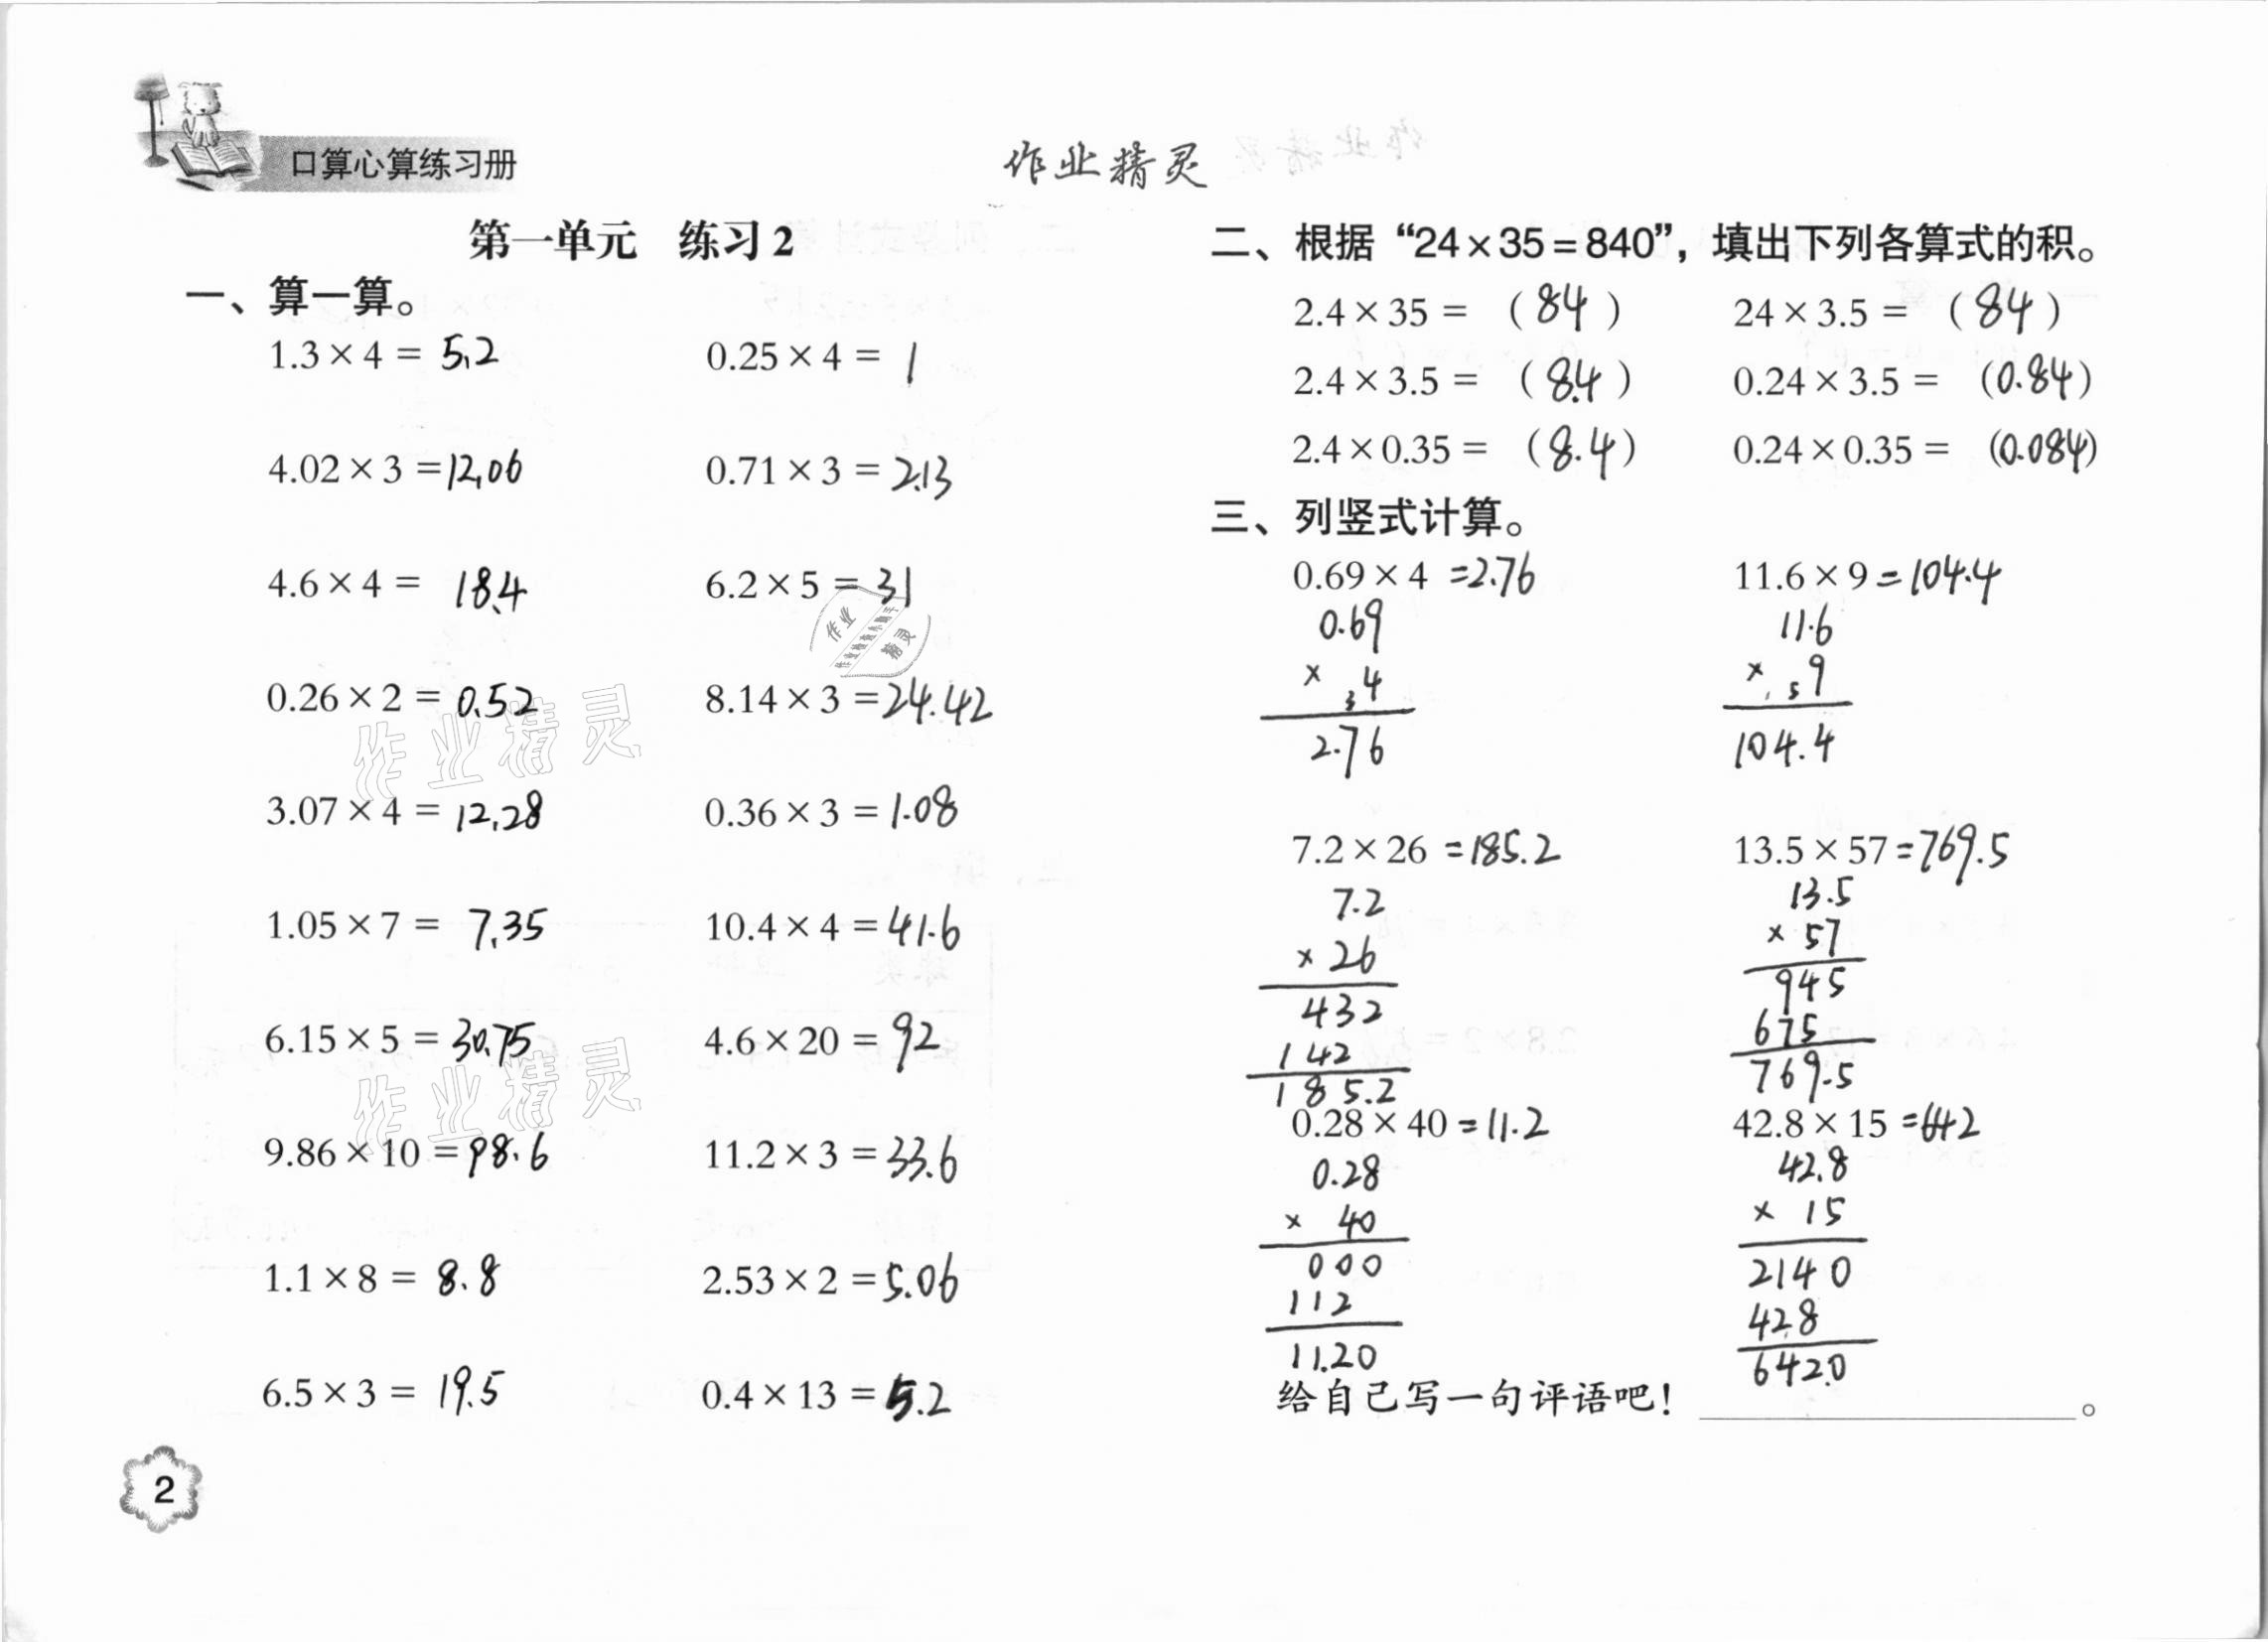 口算心算练习册
作业精灵
第一单元 练习2
一、算一算。
1.3×4= 5.2 0.25×4= 1
4.02×3=12.06 0.71×3=2.13
4.6×4= 18.4 6.2×5=31
作业
作业检查小助手
精灵
0.26×2=0.52 8.14×3=24.42
作业精灵
3.07×4=12.28 0.36×3=1.08
1.05×7= 7.35 10.4×4=41.6
6.15×5=30.75 4.6×20=92
作业精灵
9.86×10=98.6 11.2×3=33.6
1.1×8= 8.8 2.53×2=5.06
6.5×3= 19.5 0.4×13=5.2
2
二、根据“24×35=840”,填出下列各算式的积。
2.4×35= (84) 24×3.5= (84)
2.4×3.5= (8.4) 0.24×3.5= (0.84)
2.4×0.35= (8.4) 0.24×0.35= (0.084)
三、列竖式计算。
0.69×4 =2.76 11.6×9=104.4
0.69 11.6
× 3 4 × 1 5 9
2.76 104.4
7.2×26 =185.2 13.5×57=769.5
7.2 13.5
×26 ×57
432 945
142 675
185.2 769.5
0.28×40=11.2 42.8×15=642
0.28 42.8
× 40 × 15
000 2140
112 428
11.20 642.0
给自己写一句评语吧! 。